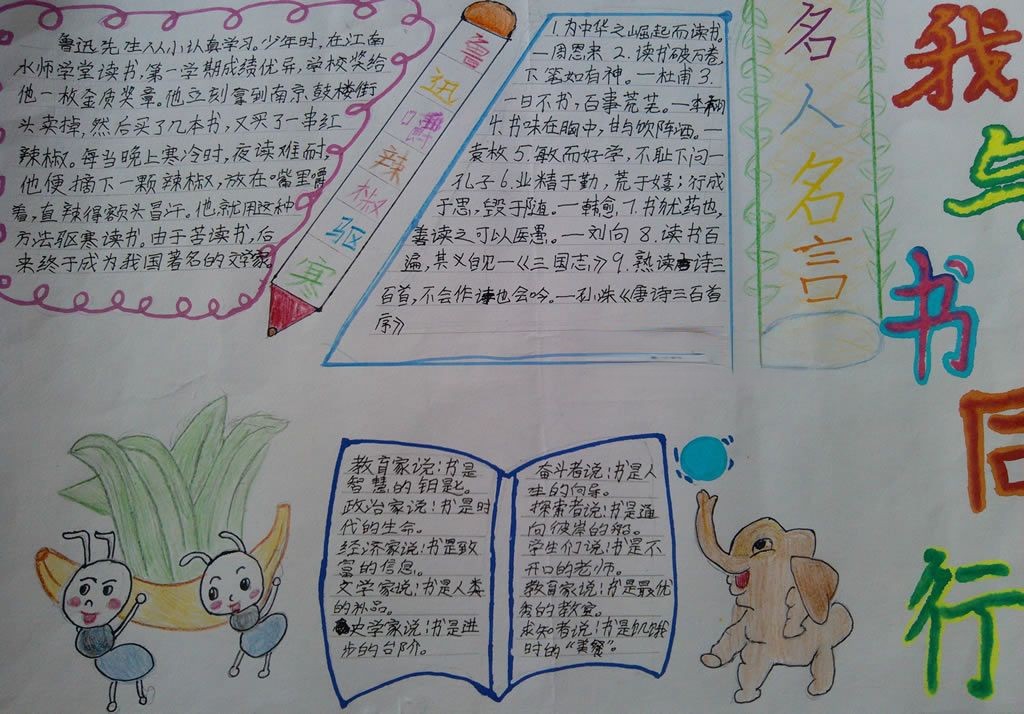 鲁迅先生从小认真学习。少年时，在江南
水师学堂读书，第一学期成绩优异，学校奖给
他一枚金质奖章。他立刻拿到南京鼓楼街
头卖掉，然后买了几本书，又买了一串红
辣椒。每当晚上寒冷时，夜读难耐，
他便摘下一颗辣椒，放在嘴里嚼
着，直辣得额头冒汗。他就用这种
方法驱寒读书。由于苦读书，后
来终于成为我国著名的文学家
鲁迅嚼辣椒驱寒
1.为中华之崛起而读书。
—周恩来 2.读书破万卷，
下笔如有神。—杜甫 3.
一日不书，百事荒芜。—李栩
4.书味在胸中，甘与饮陈酒。—
袁枚 5.敏而好学，不耻下问—
孔子 6.业精于勤，荒于嬉；行成
于思，毁于随。—韩愈，7.书犹药也，
善读之可以医愚。—刘向 8.读书百
遍，其义自见—《三国志》9.熟读唐诗三
百首，不会作诗也会吟。—孙洙《唐诗三百首
序》
名人名言
我与书同行
教育家说：书是
智慧的钥匙。
政治家说：书是时
代的生命。
经济家说：书是致
富的信息。
文学家说：书是人类
的补品。
史学家说：书是进
步的台阶。
奋斗者说：书是人
生的向导。
探索者说：书是通
向彼岸的船。
学生们说：书是不
开口的老师。
教育家说：书是最优
秀的教室。
求知者说：书是饥饿
时的“美餐”。